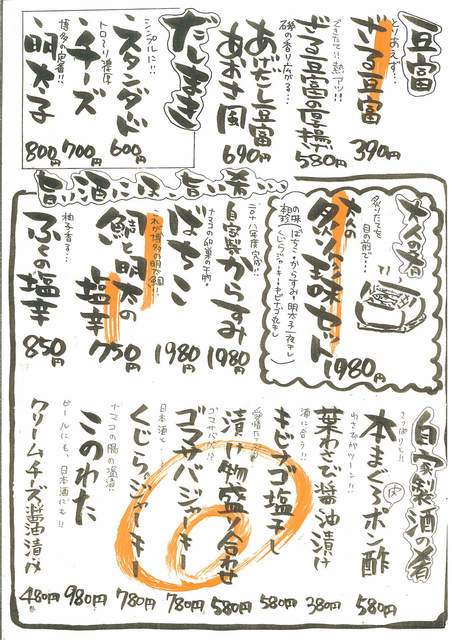 豆富
とりあえず…
ざる豆富
390円
できたて!!熱アツ!!
ざる豆富の厚揚げ
580円
磯の香り広がる…
あげだし豆富
あおさ風
690円
だしまき
シンプルに…
スタンダード
600円
トローリ濃厚
チーズ
700円
博多の定番!!
明太子
800円
旨い酒にほ、旨い肴…
大人の肴
炙りたてを
目の前で…
大人の
炙り珍味セット
1980円
自家製からすみ
1980円
ナマコの卵巣の干物。
ばちこ
1980円
これが博多の明太鯖!!
鯖と明太の
塩辛
750円
柚子香る…
ふぐの塩辛
850円
自家製酒の肴
さっぱりと!!
本まぐろポン酢
580円
わさび好きツーン!!
葉わさび醤油漬け
380円
酒に合う!!
キビナゴ塩干し
580円
愛情たっぷり
漬け物盛り合わせ
580円
ゴマサバが!?
ゴマサバジャーキー
780円
日本酒と
くじらジャーキー
780円
ナマコの腸の塩漬!!
このわた
980円
ビールにも、日本酒にも!!
クリームチーズ醤油漬け
480円